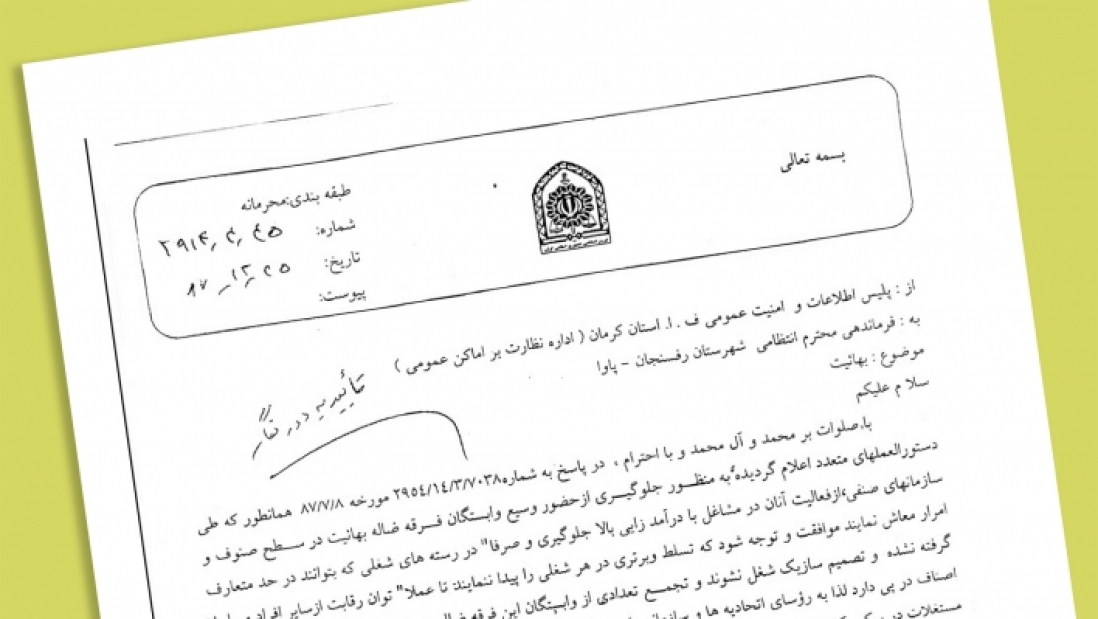 بسمه تعالی
طبقه بندی:محرمانه
شماره:
تاریخ:
پیوست:
از : پلیس اطلاعات و امنیت عمومی ف . ا. استان کرمان ( اداره نظارت بر اماکن عمومی )
به : فرماندهی محترم انتظامی شهرستان رفسنجان – پاوا
موضوع : بهائیت
سلام علیکم
با صلوات بر محمد و آل محمد و با احترام ، در پاسخ به شماره ٢٩٥٤/١٤/٣/٧٠٣٨ مورخه ٨٧/٧/٨ همانطور که طی
دستورالعملهای متعدد اعلام گردیده به منظور جلوگیری ازحضور وسیع وابستگان فرقه ضاله بهائیت در سطح صنوف و
سازمانهای صنفی،ازفعالیت آنان در مشاغل با درآمد زایی بالا جلوگیری و صرفا" در رسته های شغلی که بتوانند در حد متعارف
امرار معاش نمایند موافقت و توجه شود که تسلط وبرتری در هر شغلی را پیدا ننمایند تا عملا" توان رقابت ازسایر افراد
گرفته نشده و تصمیم سازیک شغل نشوند و تجمع تعدادی از وابستگان این فرقه
اصناف در پی دارد لذا به رؤسای اتحادیه ها و
مستغلات